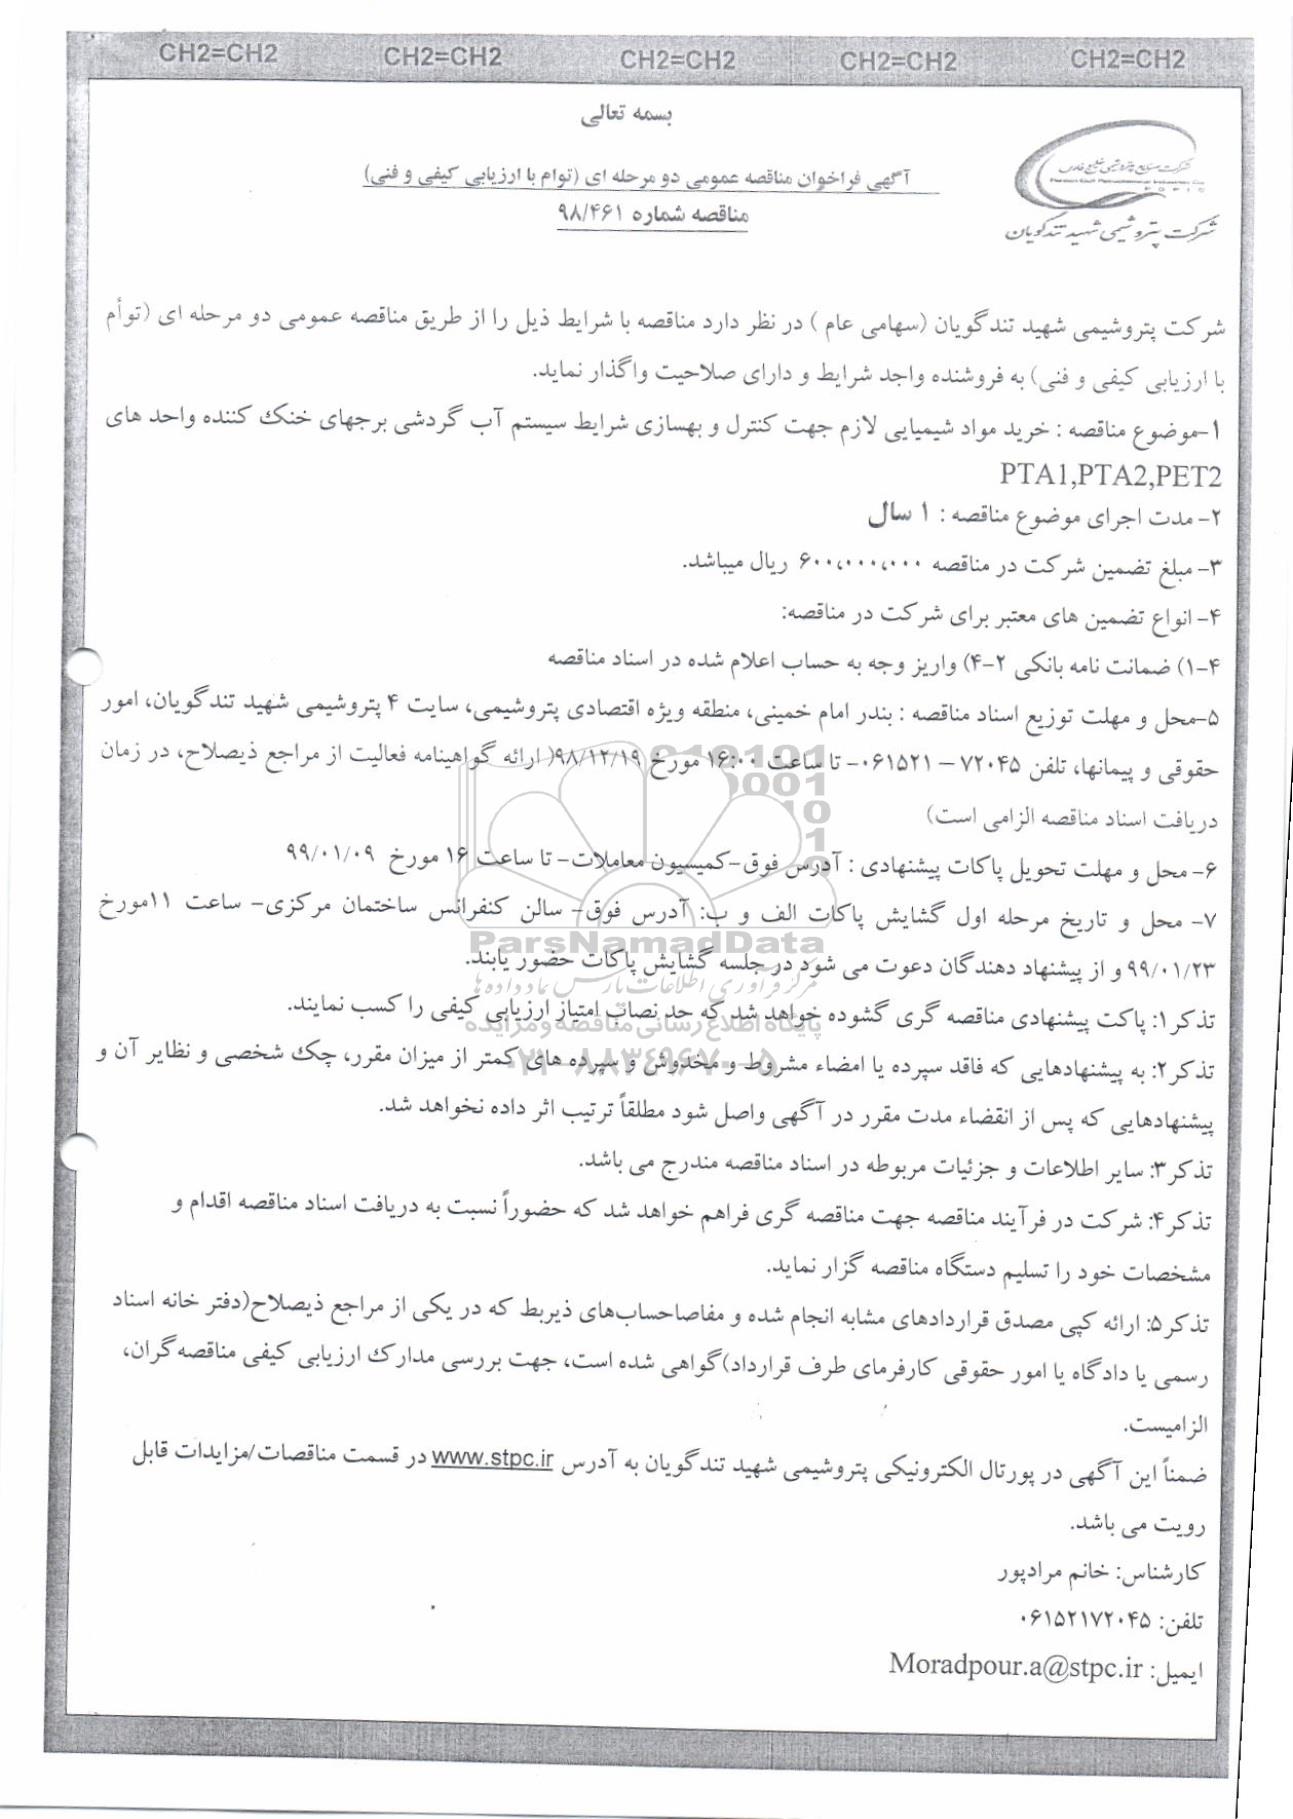 CH2=CH2 CH2=CH2 CH2=CH2 CH2=CH2 CH2=CH2
بسمه تعالی
شرکت صنایع پتروشیمی خلیج فارس
شرکت پتروشیمی شهید تندگویان
آگهی فراخوان مناقصه عمومی دو مرحله ای (توام با ارزیابی کیفی و فنی)
مناقصه شماره ۹۸/۴۶۱
شرکت پتروشیمی شهید تندگویان (سهامی عام ) در نظر دارد مناقصه با شرایط ذیل را از طریق مناقصه عمومی دو مرحله ای (توأم
با ارزیابی کیفی و فنی) به فروشنده واجد شرایط و دارای صلاحیت واگذار نماید.
۱-موضوع مناقصه : خرید مواد شیمیایی لازم جهت کنترل و بهسازی شرایط سیستم آب گردشی برجهای خنک کننده واحد های
PTA1,PTA2,PET2
۲- مدت اجرای موضوع مناقصه : ۱ سال
۳- مبلغ تضمین شرکت در مناقصه ۶۰۰،۰۰۰،۰۰۰ ریال میباشد.
۴- انواع تضمین های معتبر برای شرکت در مناقصه:
۴-۱) ضمانت نامه بانکی ۲-۴) واریز وجه به حساب اعلام شده در اسناد مناقصه
۵-محل و مهلت توزیع اسناد مناقصه : بندر امام خمینی، منطقه ویژه اقتصادی پتروشیمی، سایت ۴ پتروشیمی شهید تندگویان، امور
حقوقی و پیمانها، تلفن ۷۲۰۴۵ – ۰۶۱۵۲۱- تا ساعت ۱۶:۰۰ مورخ ۹۸/۱۲/۱۹( ارائه گواهینامه فعالیت از مراجع ذیصلاح، در زمان
دریافت اسناد مناقصه الزامی است)
۶- محل و مهلت تحویل پاکات پیشنهادی : آدرس فوق-کمیسیون معاملات- تا ساعت ۱۶ مورخ ۹۹/۰۱/۰۹
۷- محل و تاریخ مرحله اول گشایش پاکات الف و ب: آدرس فوق- سالن کنفرانس ساختمان مرکزی- ساعت ۱۱مورخ
ParsNamadData
۹۹/۰۱/۲۳ و از پیشنهاد دهندگان دعوت می شود در جلسه گشایش پاکات حضور یابند.
مرکز فرآوری اطلاعات پارس نماد داده ها
تذکر۱: پاکت پیشنهادی مناقصه گری گشوده خواهد شد که حد نصاب امتیاز ارزیابی کیفی را کسب نمایند.
پایگاه اطلاع رسانی مناقصه و مزایده
تذکر۲: به پیشنهادهایی که فاقد سپرده یا امضاء مشروط و مخدوش و سپرده های کمتر از میزان مقرر، چک شخصی و نظایر آن و
۰۲۱-۸۸۳۴۹۶۷۰-۵
پیشنهادهایی که پس از انقضاء مدت مقرر در آگهی واصل شود مطلقاً ترتیب اثر داده نخواهد شد.
تذکر۳: سایر اطلاعات و جزئیات مربوطه در اسناد مناقصه مندرج می باشد.
تذکر۴: شرکت در فرآیند مناقصه جهت مناقصه گری فراهم خواهد شد که حضوراً نسبت به دریافت اسناد مناقصه اقدام و
مشخصات خود را تسلیم دستگاه مناقصه گزار نماید.
تذکر۵: ارائه کپی مصدق قراردادهای مشابه انجام شده و مفاصاحساب‌های ذیربط که در یکی از مراجع ذیصلاح(دفتر خانه اسناد
رسمی یا دادگاه یا امور حقوقی کارفرمای طرف قرارداد)گواهی شده است، جهت بررسی مدارک ارزیابی کیفی مناقصه‌گران،
الزامیست.
ضمناً این آگهی در پورتال الکترونیکی پتروشیمی شهید تندگویان به آدرس www.stpc.ir در قسمت مناقصات/مزایدات قابل
رویت می باشد.
کارشناس: خانم مرادپور
تلفن: ۰۶۱۵۲۱۷۲۰۴۵
ایمیل: Moradpour.a@stpc.ir